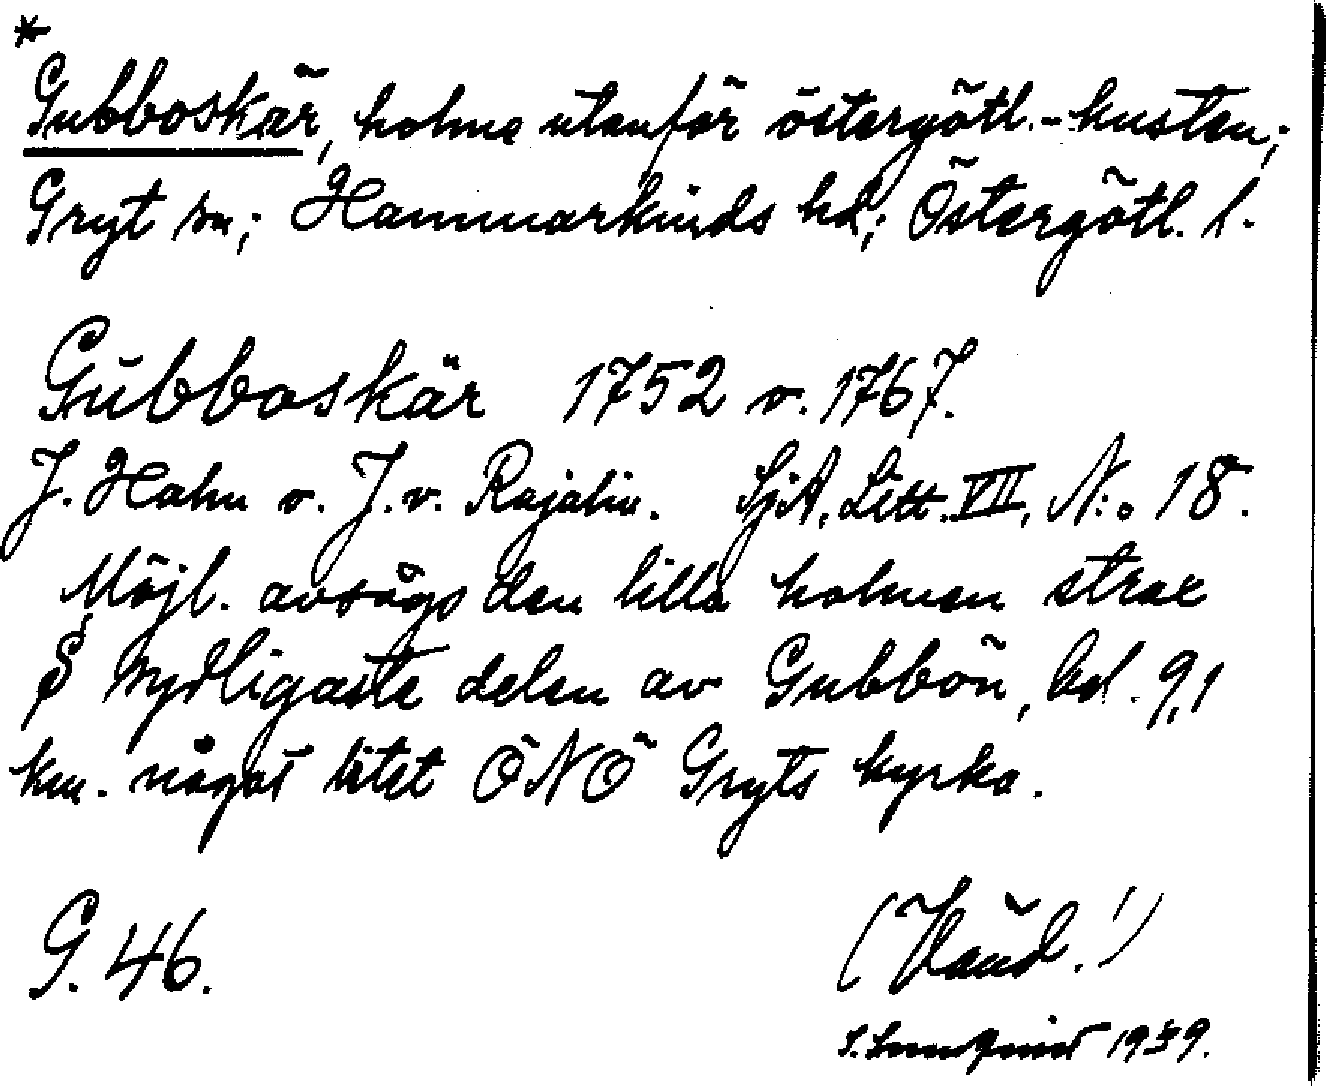 *
Gubboskär, holme utanför östergötl.-kusten;
Gryt sn; Hammarkinds hd; Östergötl. l.
Gubboskär 1752 o. 1767.
J. Hahn o. J. v. Rajalin. SjA, Litt. VII, N:o 18.
Möjl. avsågs den lilla holmen strax
S sydligaste delen av Gubbön, bel. 9,1
km. något litet ÖNÖ Gryts kyrka.
G. 46.
1939.